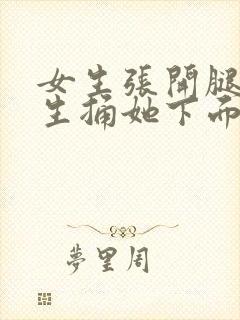 女生張開腿
生捅她下面
夢里周